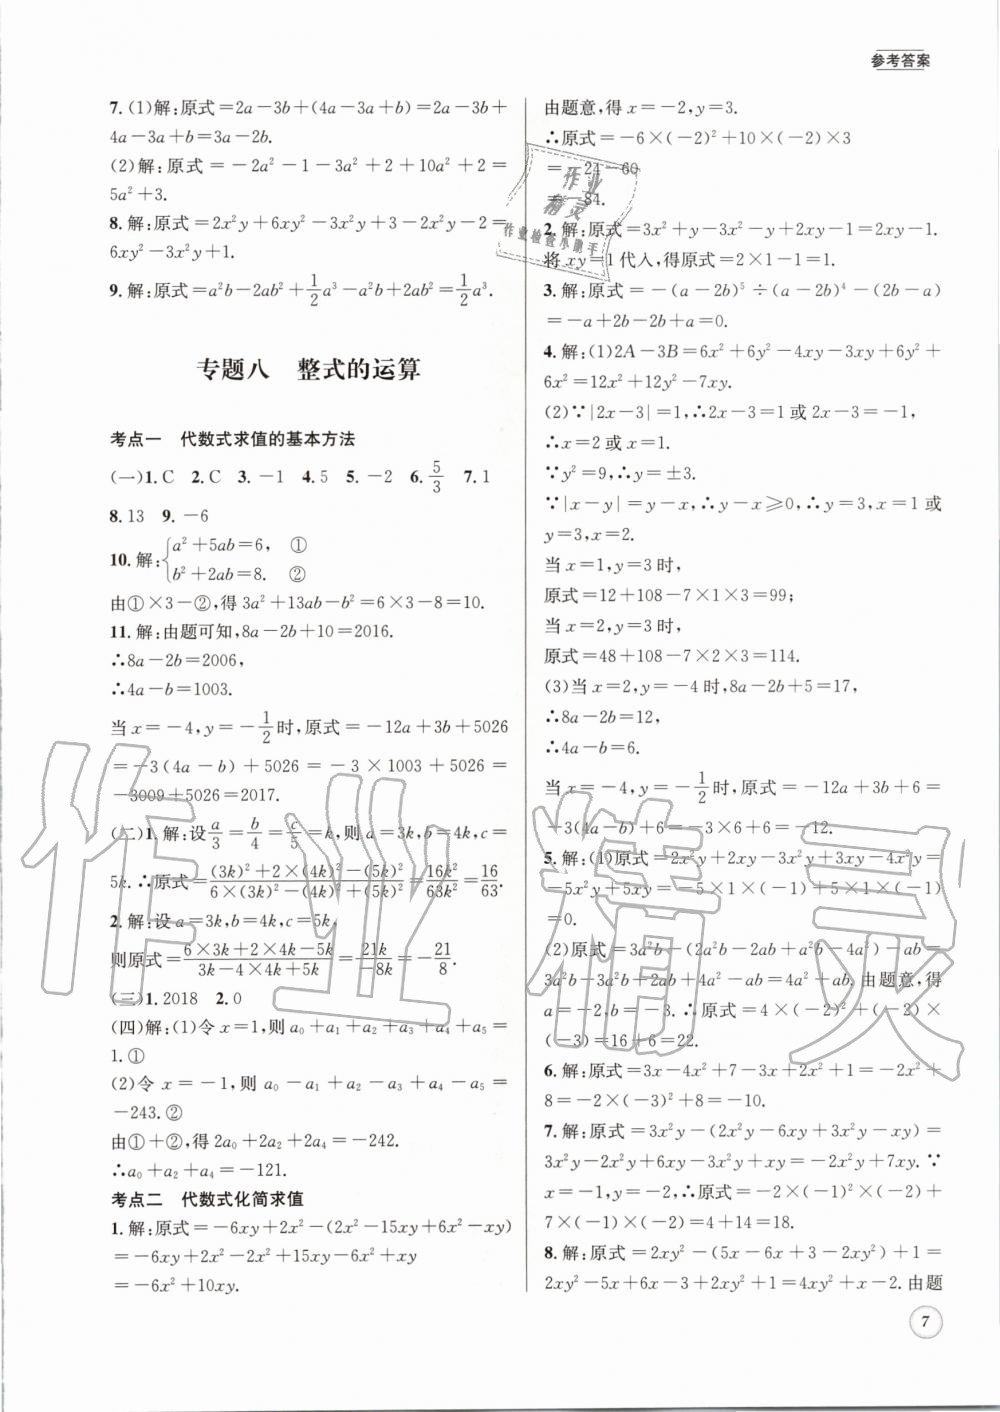 参考答案
7.(1)解:原式=2a-3b+(4a-3a+b)=2a-3b+
4a-3a+b=3a-2b.
(2)解:原式=-2a²-1-3a²+2+10a²+2=
5a²+3.
8.解:原式=2x²y+6xy²-3x²y+3-2x²y-2=
6xy²-3x²y+1.
9.解:原式=a²b-2ab²+1/2a³-a²b+2ab²=1/2a³.
专题八 整式的运算
考点一 代数式求值的基本方法
(一)1.C 2.C 3.-1 4.5 5.-2 6.5/3 7.1
8.13 9.-6
10.解:{a²+5ab=6, ①
b²+2ab=8. ②
由①×3-②,得3a²+13ab-b²=6×3-8=10.
11.解:由题可知,8a-2b+10=2016.
∴8a-2b=2006,
∴4a-b=1003.
当x=-4,y=-1/2时,原式=-12a+3b+5026
=-3(4a-b)+5026=-3×1003+5026=
-3009+5026=2017.
(二)1.解:设a/3=b/4=c/5=k,则a=3k,b=4k,c=
5k.∴原式=((3k)²+2×(4k)²-(5k)²)/(6×(3k)²-(4k)²+(5k)²)=16k²/63k²=16/63.
2.解:设a=3k,b=4k,c=5k,
则原式=(6×3k+2×4k-5k)/(3k-4×4k+5k)=21k/-8k=-21/8.
(三)1.2018 2.0
(四)解:(1)令x=1,则a₀+a₁+a₂+a₃+a₄+a₅=
1.①
(2)令x=-1,则a₀-a₁+a₂-a₃+a₄-a₅=
-243.②
由①+②,得2a₀+2a₂+2a₄=-242.
∴a₀+a₂+a₄=-121.
考点二 代数式化简求值
1.解:原式=-6xy+2x²-(2x²-15xy+6x²-xy)
=-6xy+2x²-2x²+15xy-6x²+xy
=-6x²+10xy.
由题意,得x=-2,y=3.
∴原式=-6×(-2)²+10×(-2)×3
=-24-60
=-84.
2.解:原式=3x²+y-3x²-y+2xy-1=2xy-1.
将xy=1代入,得原式=2×1-1=1.
3.解:原式=-(a-2b)⁵÷(a-2b)⁴-(2b-a)
=-a+2b-2b+a=0.
4.解:(1)2A-3B=6x²+6y²-4xy-3xy+6y²+
6x²=12x²+12y²-7xy.
(2)∵|2x-3|=1,∴2x-3=1或2x-3=-1,
∴x=2或x=1.
∵y²=9,∴y=±3.
∵|x-y|=y-x,∴y-x≥0,∴y=3,x=1或
y=3,x=2.
当x=1,y=3时,
原式=12+108-7×1×3=99;
当x=2,y=3时,
原式=48+108-7×2×3=114.
(3)当x=2,y=-4时,8a-2b+5=17,
∴8a-2b=12,
∴4a-b=6.
当x=-4,y=-1/2时,原式=-12a+3b+6=
-3(4a-b)+6=-3×6+6=-12.
5.解:(1)原式=2x²y+2xy-3x²y+3xy-4x²y=
-5x²y+5xy=-5×1×(-1)+5×1×(-1)
=0.
(2)原式=3a²b-(2a²b-2ab+a²b-4a²)-ab=
3a²b-3a²b+2ab+4a²-ab=4a²+ab.由题意,得
a=-2,b=-3.∴原式=4×(-2)²+(-2)×
(-3)=16+6=22.
6.解:原式=3x-4x²+7-3x+2x²+1=-2x²+
8=-2×(-3)²+8=-10.
7.解:原式=3x²y-(2x²y-6xy+3x²y-xy)=
3x²y-2x²y+6xy-3x²y+xy=-2x²y+7xy.∵
x=-1,y=-2,∴原式=-2×(-1)²×(-2)+
7×(-1)×(-2)=4+14=18.
8.解:原式=2xy²-(5x-6x+3-2xy²)+1=
2xy²-5x+6x-3+2xy²+1=4xy²+x-2.由题
7
作业精灵
作业检查小助手
作业精灵